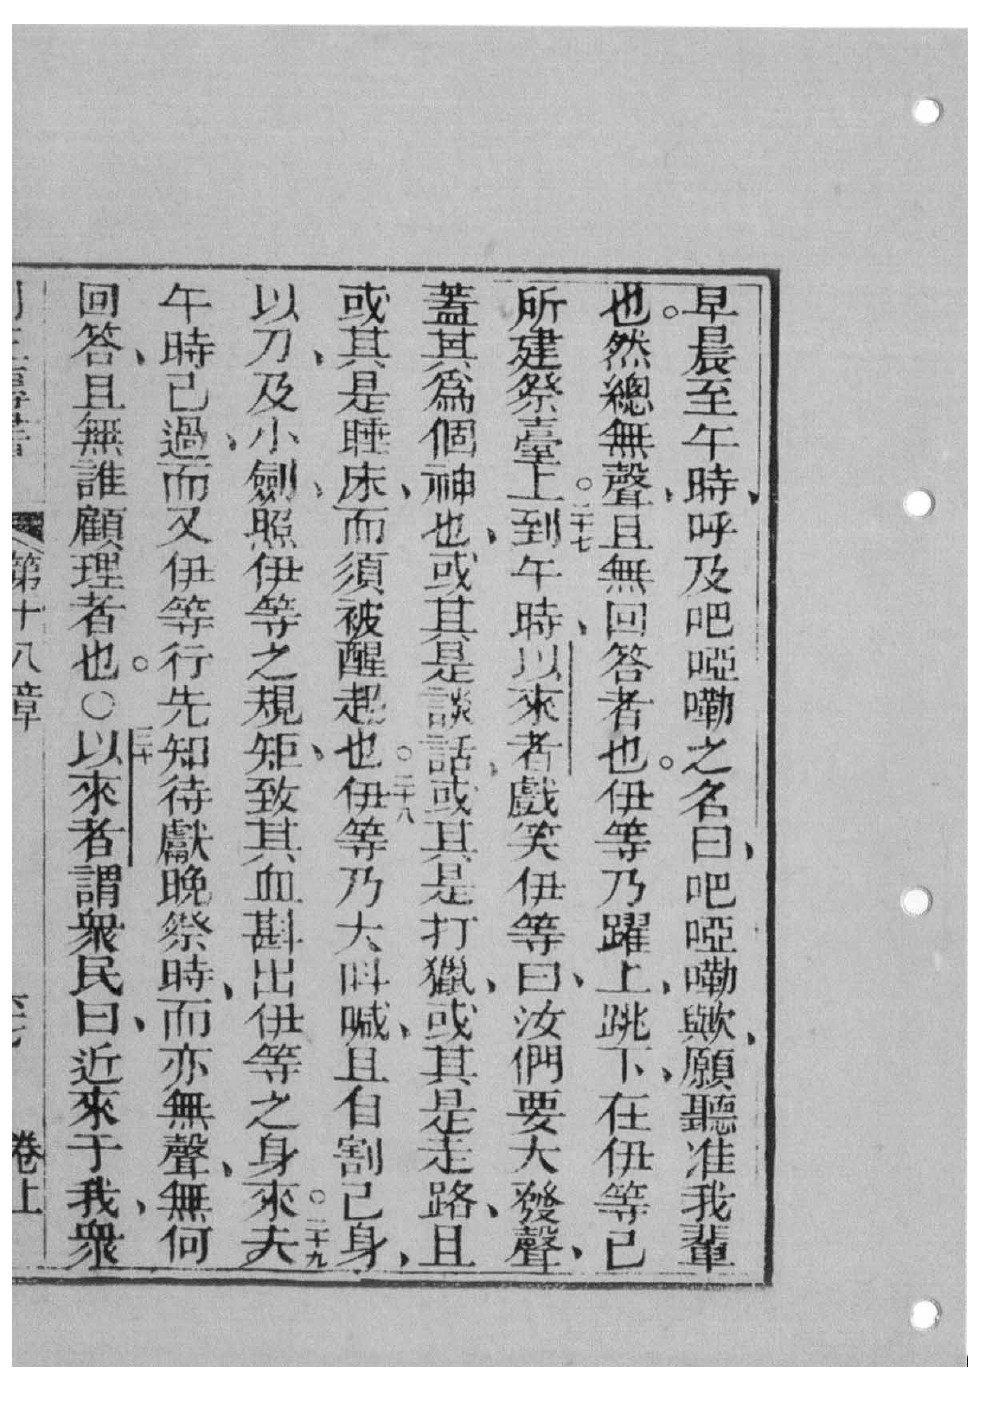 早晨至午時、呼及吧啞嘞之名曰、吧啞嘞歟、願聽准我輩
也。然總無聲、且無回答者也。伊等乃躍上、跳下、在伊等已
所建祭臺上。二十七到午時、以來者戲笑伊等曰、汝們要大發聲、
蓋其爲個神也、或其是談話、或其是打獵、或其是走路、且
或其是睡床、而須被醒起也。二十八伊等乃大呌喊、且自割己身、
以刀、及小劍、照伊等之規矩、致其血斟出伊等之身來。二十九夫
午時已過、而又伊等行先知待獻晚祭時、而亦無聲、無何
回答、且無誰顧理者也。○三十以來者謂衆民曰、近來于我、衆
第十八章 卷上